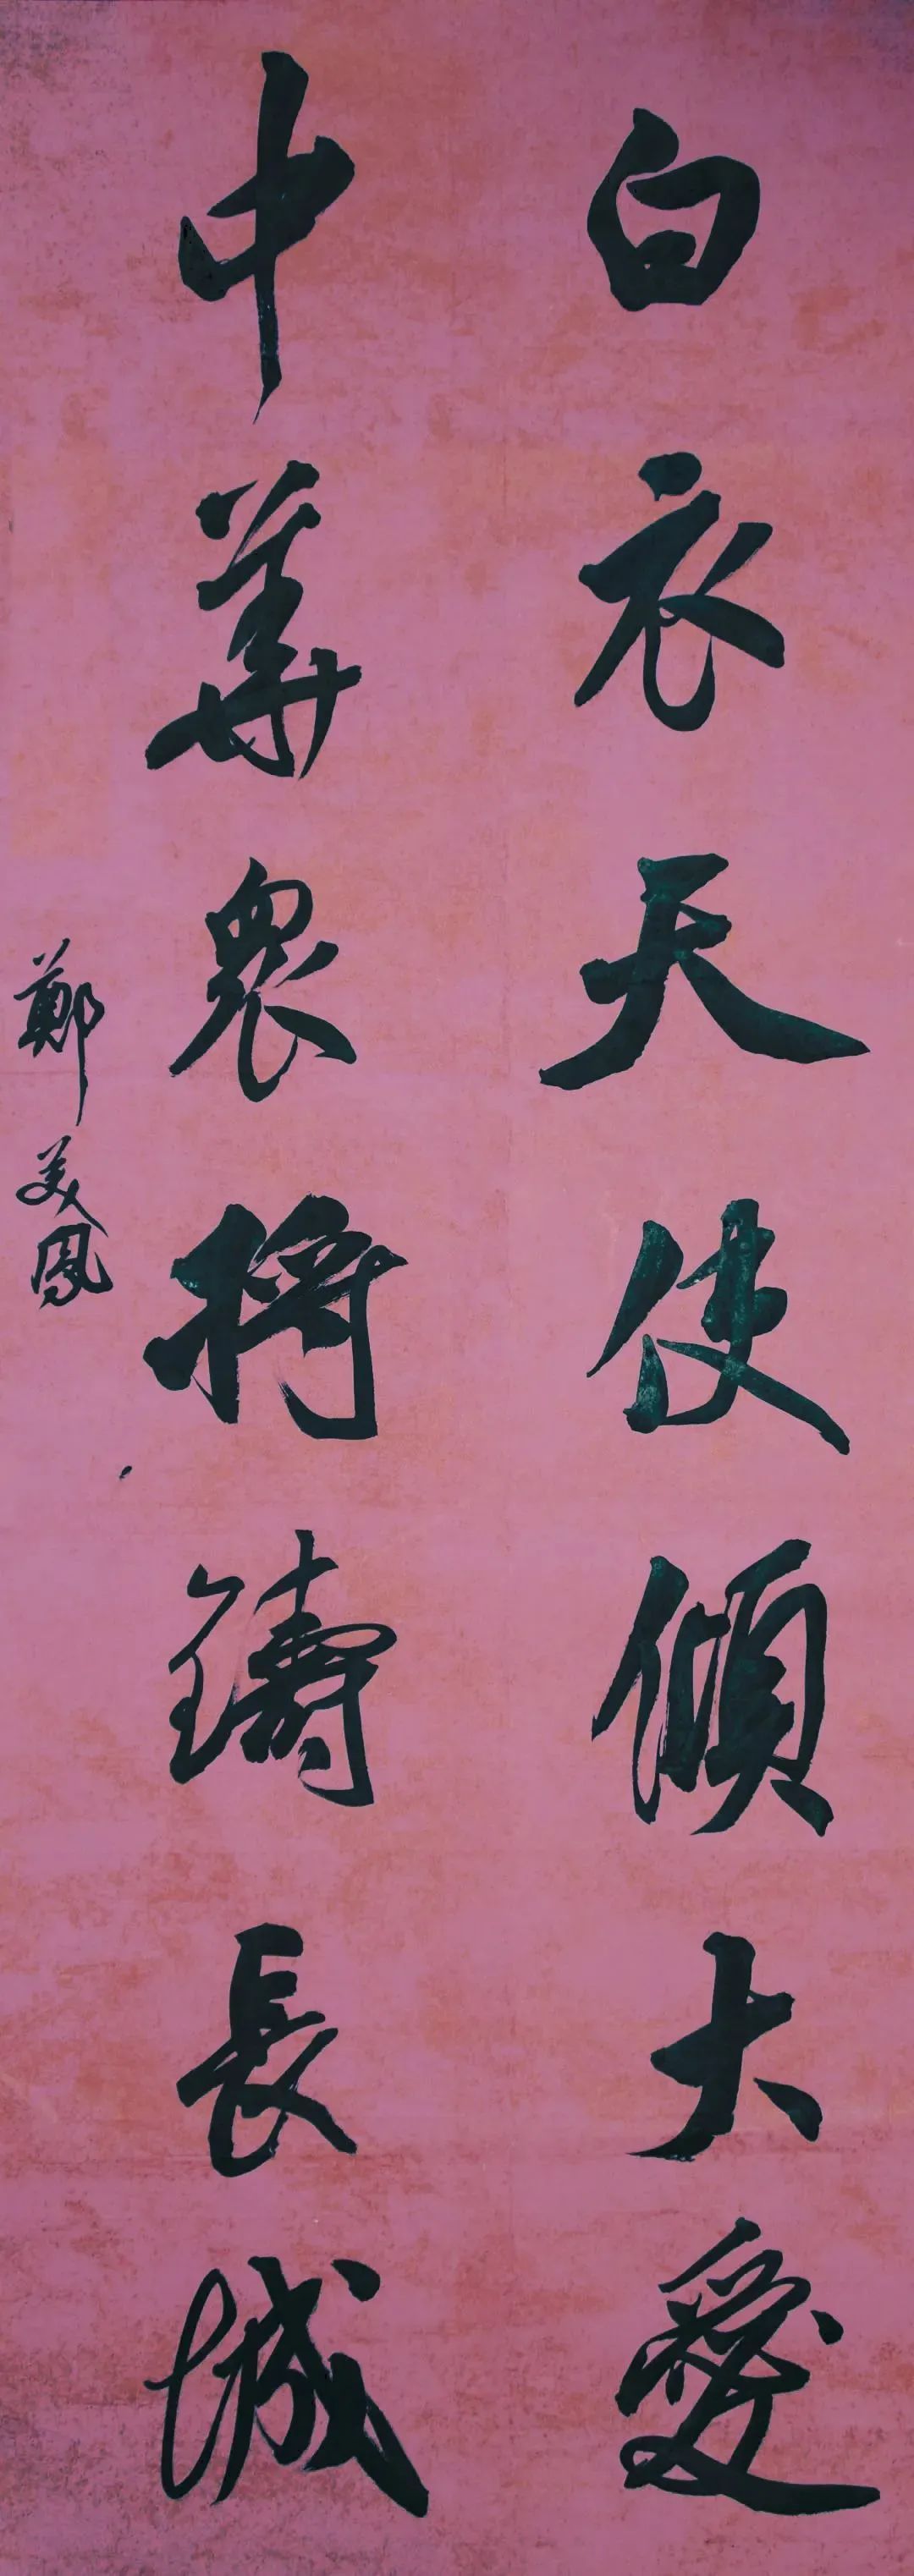 白衣天使傾大愛
中華眾將鑄長城
鄭美鳳